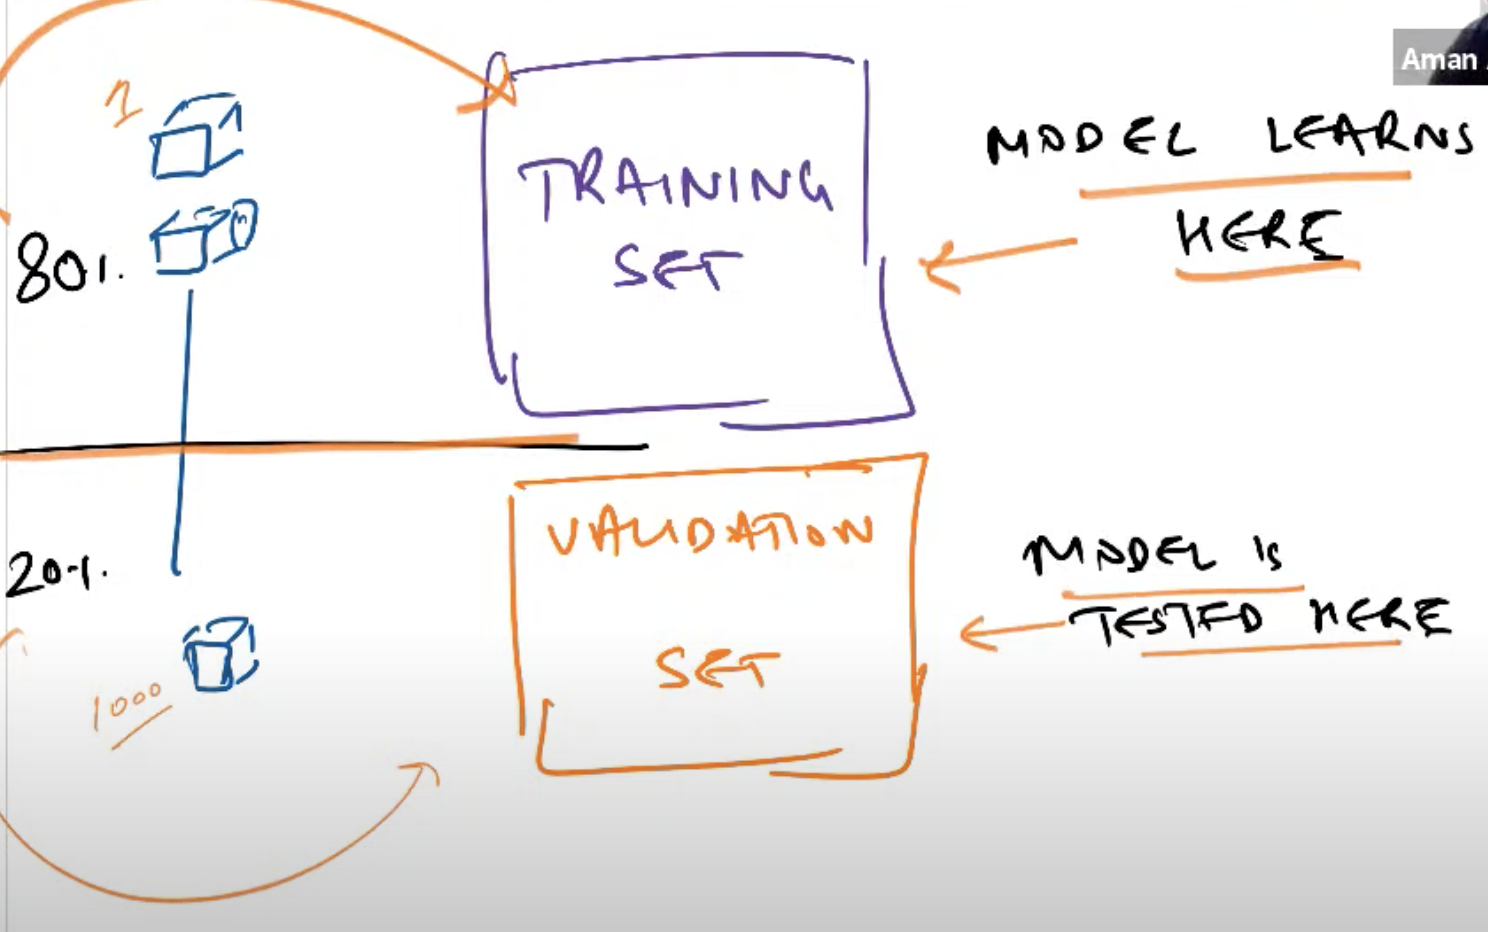 Aman
1
80%
TRAINING
SET
MODEL LEARNS
HERE
20%
VALIDATION
SET
MODEL IS
TESTED HERE
1000